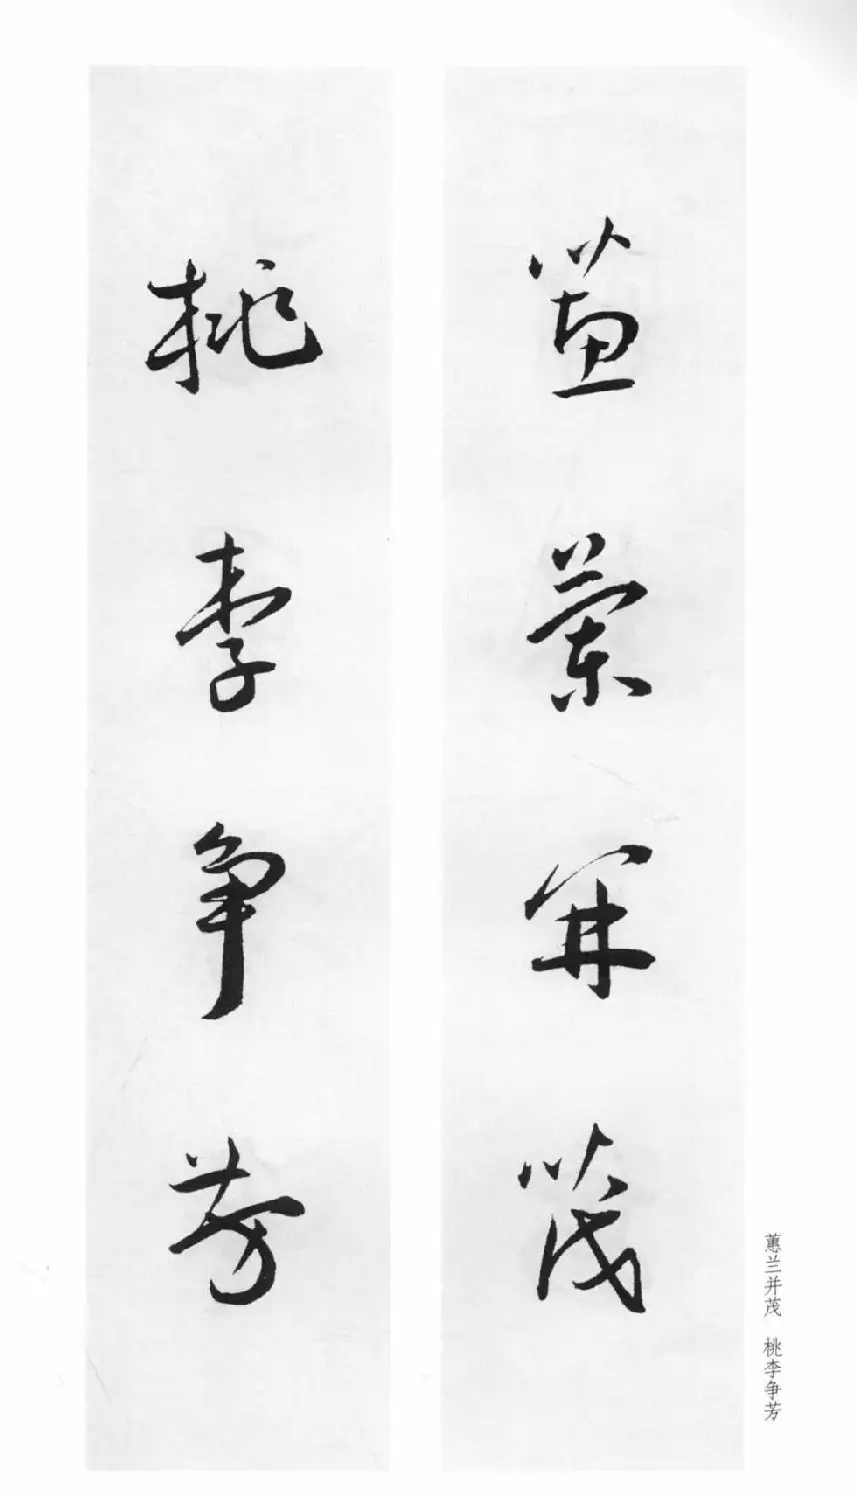 蕙蘭并茂
桃李争芳
蕙兰并茂 桃李争芳